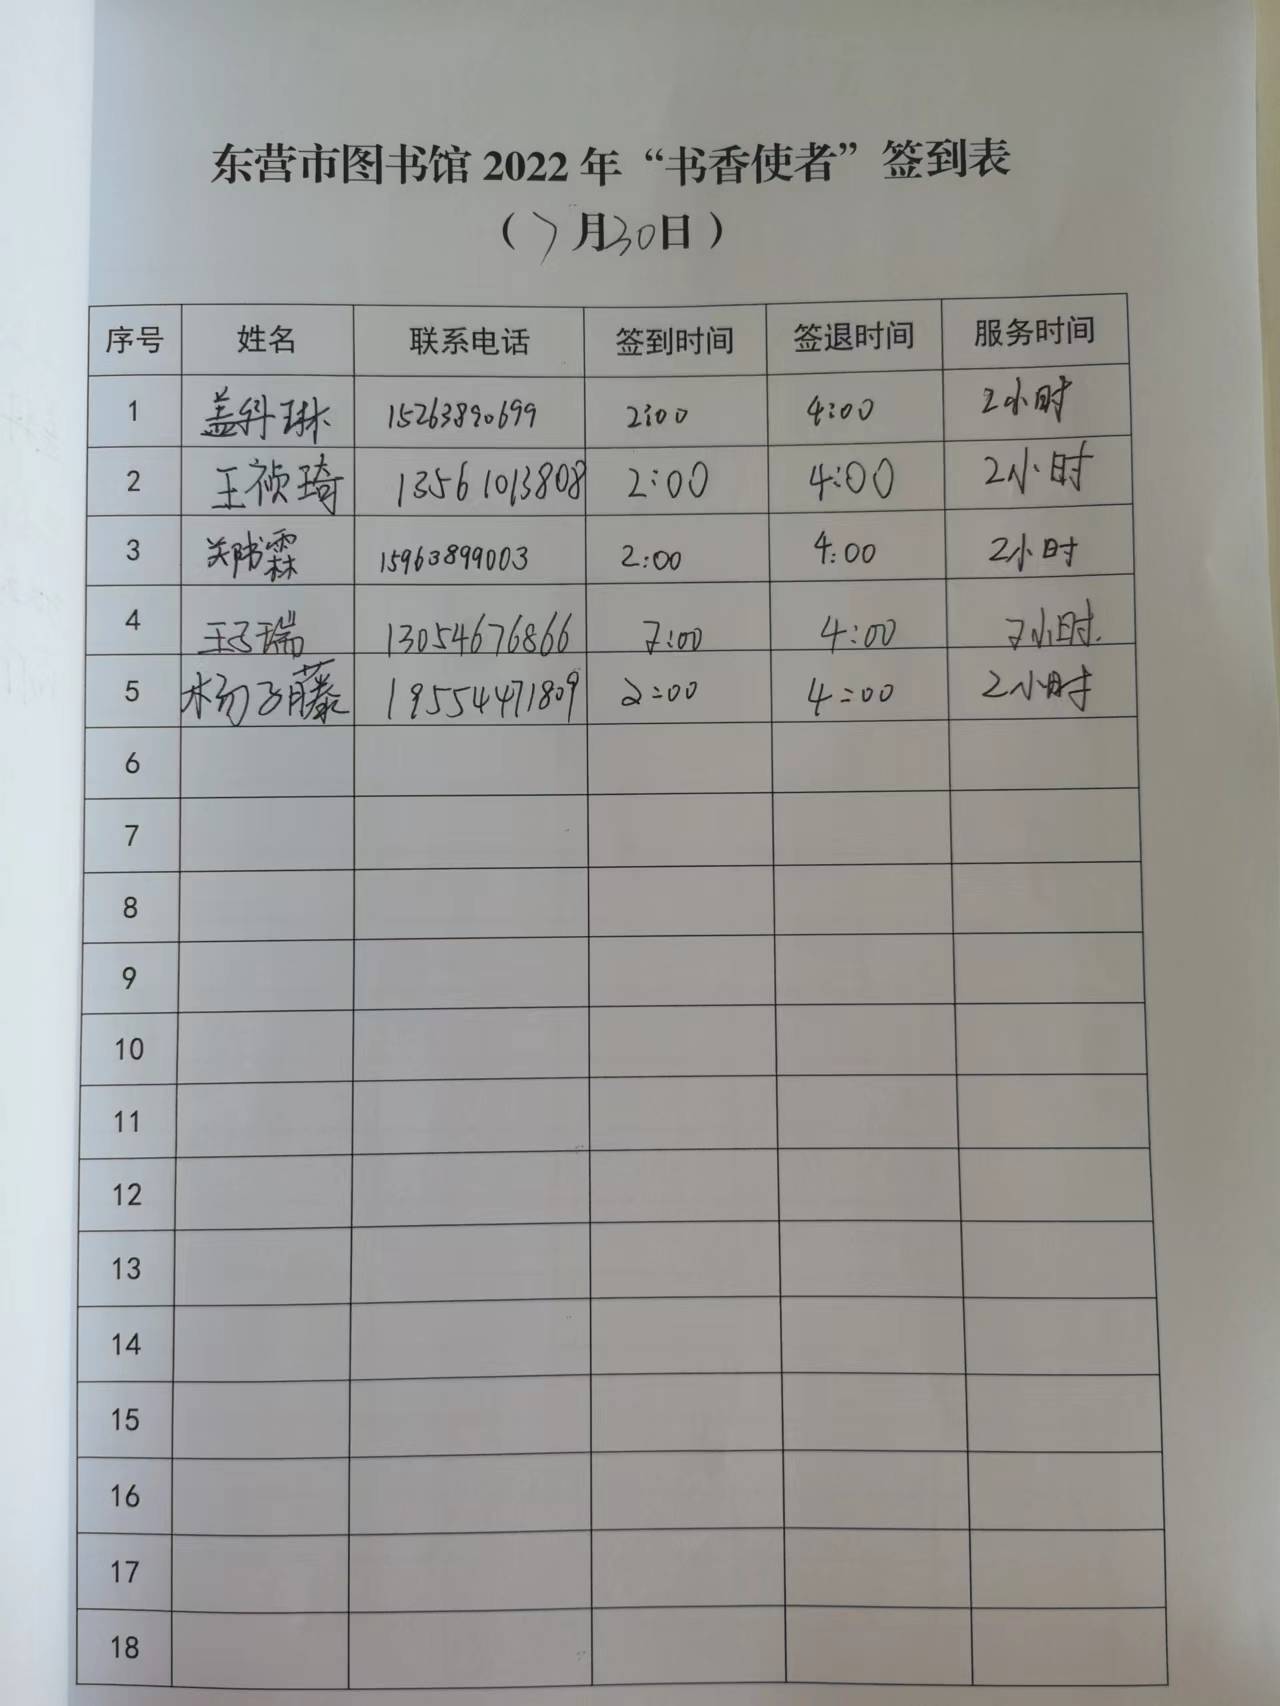 东营市图书馆 2022 年“书香使者”签到表
（7月30日）
序号 姓名 联系电话 签到时间 签退时间 服务时间
1 盖科琳 15263890699 2:00 4:00 2小时
2 王祯琦 13561013808 2:00 4:00 2小时
3 霖 15963899003 2:00 4:00 2小时
4 王子瑞 13054676866 2:00 4:00 2小时.
5 杨子藤 19554471809 2:00 4:00 2小时
6
7
8
9
10
11
12
13
14
15
16
17
18